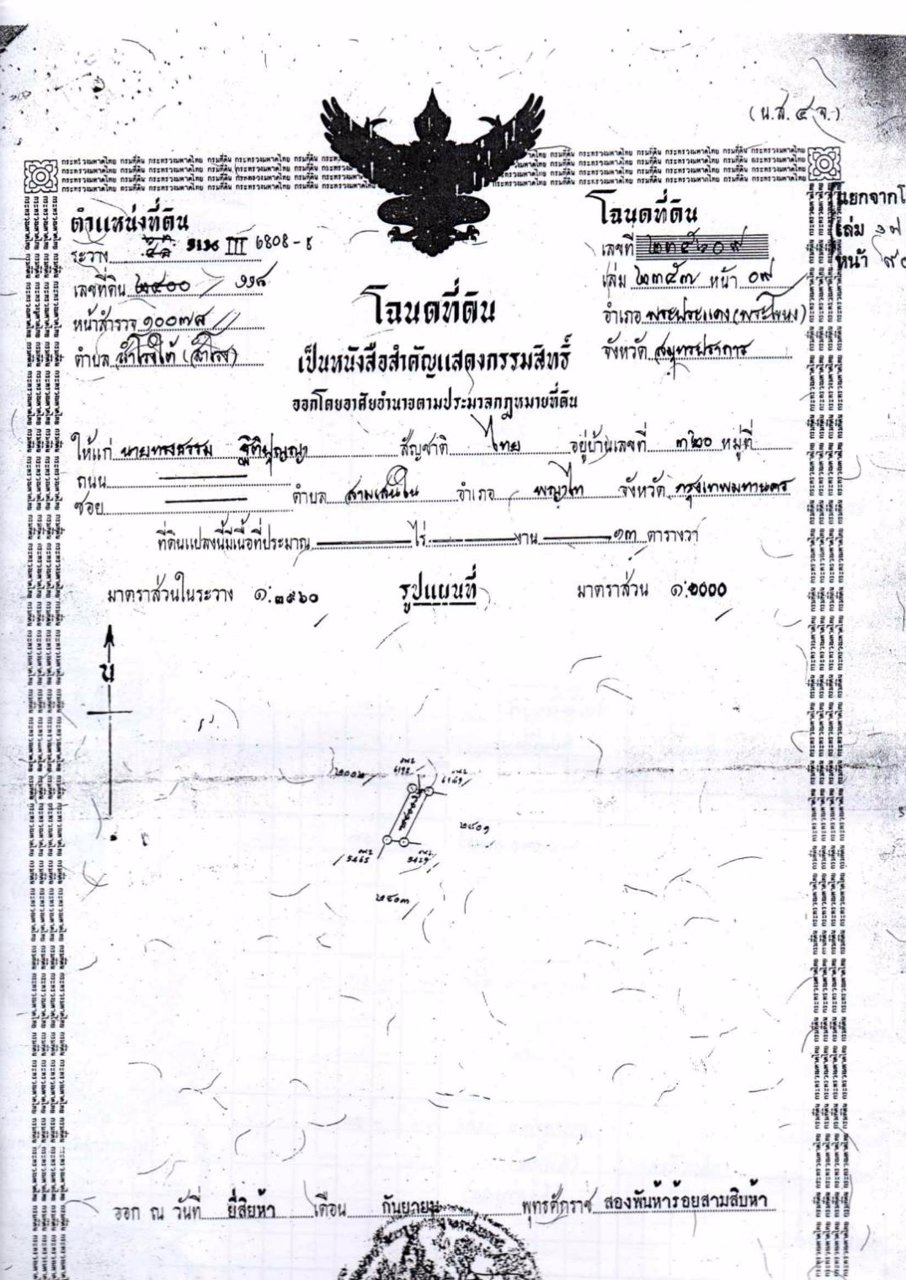 (น.ส. ๔ จ.)
ตำแหน่งที่ดิน
ระวาง 5136 III 6808-8
เลขที่ดิน ๒๔๐๐ ๑๑๘
หน้าสำรวจ ๑๐๐๗๘
ตำบล สำโรงใต้ (สำโรง)
โฉนดที่ดิน
เลขที่
เล่ม ๒๓๕๓ หน้า ๐๙
อำเภอ พระประแดง (พระโขนง)
จังหวัด สมุทรปราการ
แยกจากโ
เล่ม ๑๗
หน้า ๙๐
โฉนดที่ดิน
เป็นหนังสือสำคัญแสดงกรรมสิทธิ์
ออกโดยอาศัยอำนาจตามประมวลกฎหมายที่ดิน
ให้แก่ นายทรงธรรม ฐิติปุญญา สัญชาติ ไทย อยู่บ้านเลขที่ ๓๒๐ หมู่ที่
ถนน
ซอย ตำบล สามเสนใน อำเภอ พญาไท จังหวัด กรุงเทพมหานคร
ที่ดินแปลงนี้มีเนื้อที่ประมาณ ไร่ งาน ๑๓ ตารางวา
มาตราส่วนในระวาง ๑:๓๙๖๐ รูปแผนที่ มาตราส่วน ๑:๑๐๐๐
น
๒๔๐๑
5465
๒๔๐๓
ออก ณ วันที่ ยี่สิบห้า เดือน กันยายน พุทธศักราช สองพันห้าร้อยสามสิบห้า